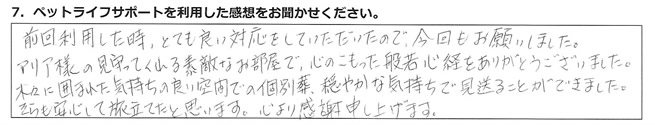 7. ペットライフサポートを利用した感想をお聞かせください。
前回利用した時、とても良い対応をしていただいたので、今回もお願いしました。
マリア様の見守ってくれる素敵なお部屋で、心のこもった般若心経をありがとうございました。
木々に囲まれた気持ちの良い空間での個別葬、穏やかな気持ちで見送ることができました。
そらも安心して旅立てたと思います。心より感謝申し上げます。